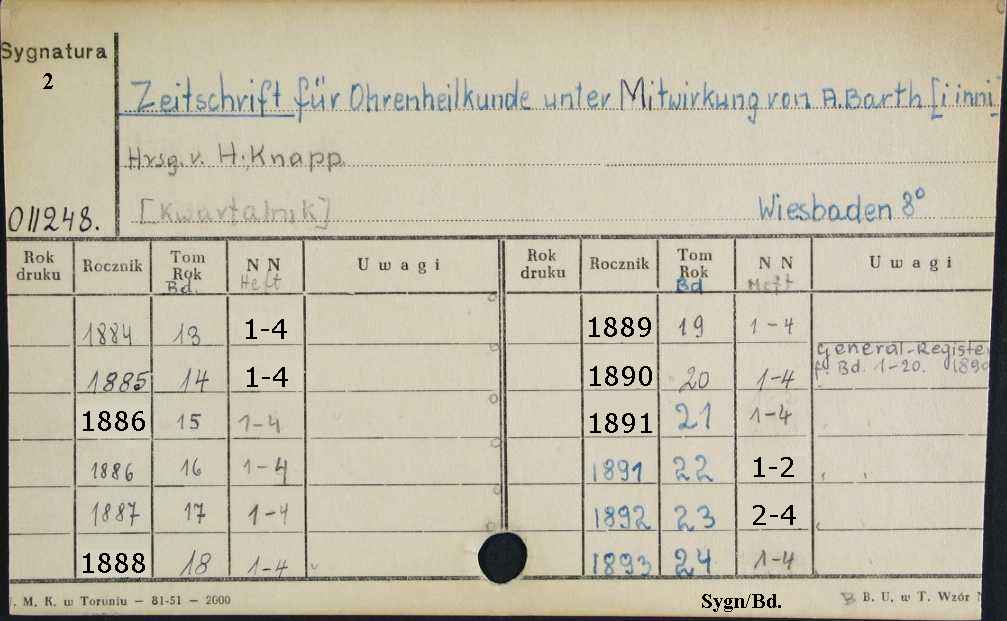 Sygnatura
2
Zeitschrift für Ohrenheilkunde unter Mitwirkung von A. Barth [i inni]
Hrsg. v. H. Knapp
[Kwartalnik] Wiesbaden 8°
011248.
Rok druku Rocznik Tom Rok Bd. N N Heft Uwagi Rok druku Rocznik Tom Rok Bd N N Heft Uwagi
1884 13 1-4 1889 19 1-4
1885 14 1-4 1890 20 1-4 General-Registe f. Bd. 1-20. 189
1886 15 1-4 1891 21 1-4
1886 16 1-4 1891 22 1-2
1887 17 1-4 1892 23 2-4
1888 18 1-4 1893 24 1-4
. M. K. w Toruniu — 81-51 — 2000 Sygn/Bd. B. U. w T. Wzór